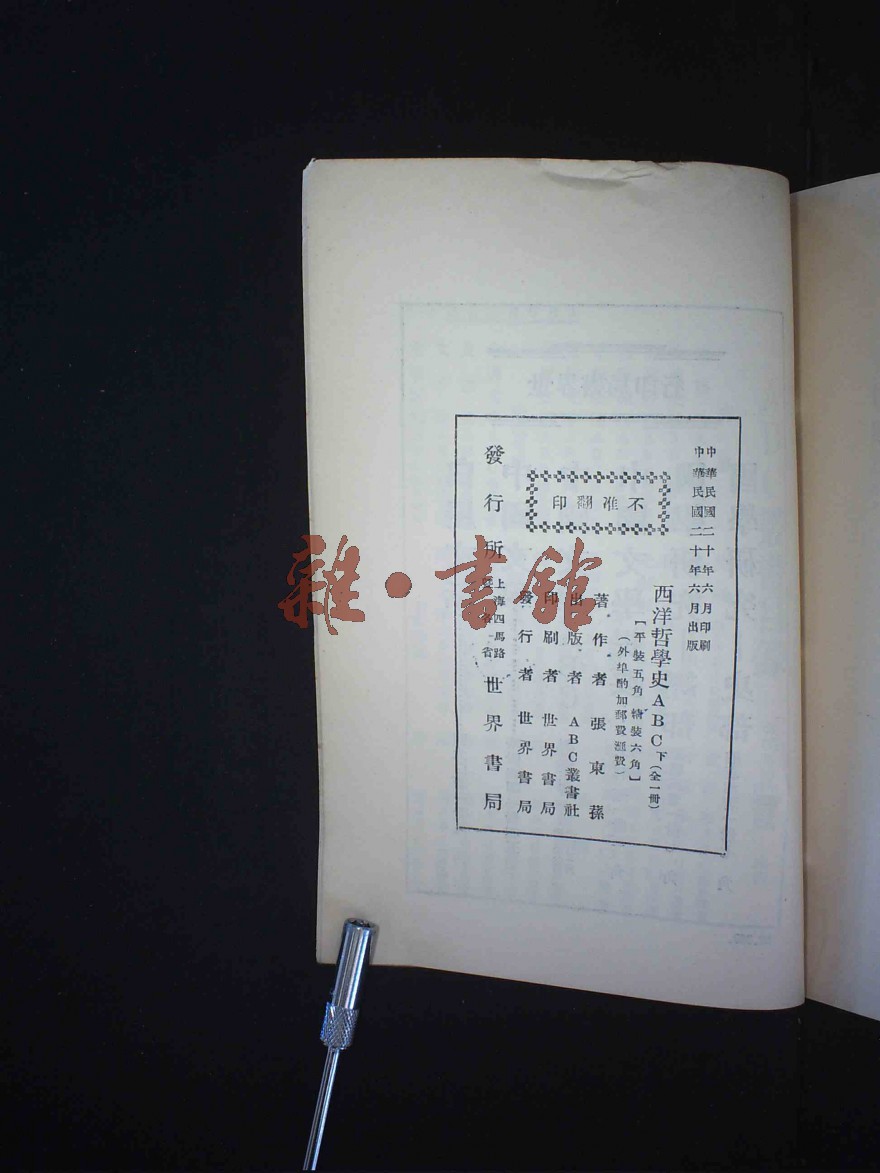 中華民國二十年六月印刷
中華民國二十年六月出版
西洋哲學史ABC下(全一冊)
【平裝五角 精裝六角】
(外埠酌加郵費匯費)
不准翻印
著作者 張東蓀
出版者 ABC叢書社
印刷者 世界書局
發行者 世界書局
發行所 上海四馬路 省 世界書局
雜·書館